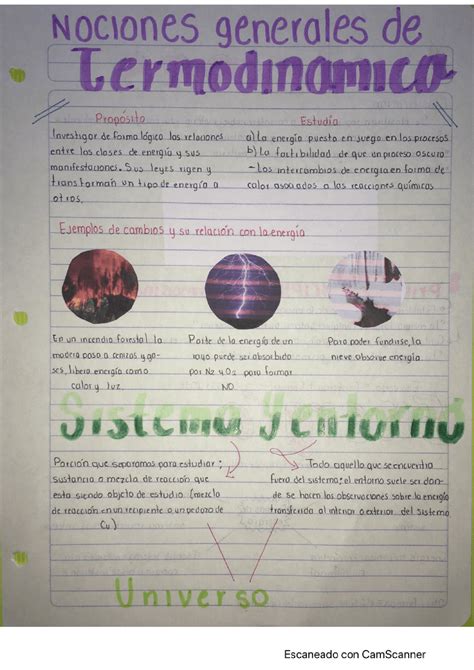 Nociones generales de
Termodinamica
Propósito
Investigar de forma lógica las relaciones
entre los clases de energía y sus
manifestaciones. Sus leyes rigen y
transforman un tipo de energía a
otros.
Estudia
a) La energía puesta en juego en los procesos
b) La factibilidad de que un proceso oscura
- Los intercambios de energia en forma de
calor asociados a las reacciones químicas
Ejemplos de cambios y su relación con la energía
En un incendio forestal la
madera pasa a cenizas y ga-
ses, libera energía como
calor y luz.
Parte de la energía de un
rayo puede ser absorbido
por N2 y O2 para formar
NO.
Para poder fundirse, la
nieve absorve energía
Sistema y entorno
Porción que separamos para estudiar;
sustancia o mezcla de reacción que
esta siendo objeto de estudio. (mezcla
de reacción en un recipiente o un pedazo de
Cu)
Todo aquello que se encuentra
fuera del sistema; el entorno suele ser don-
de se hacen las observaciones sobre la energía
transferida al interior o exterior del sistema
Universo
Escaneado con CamScanner